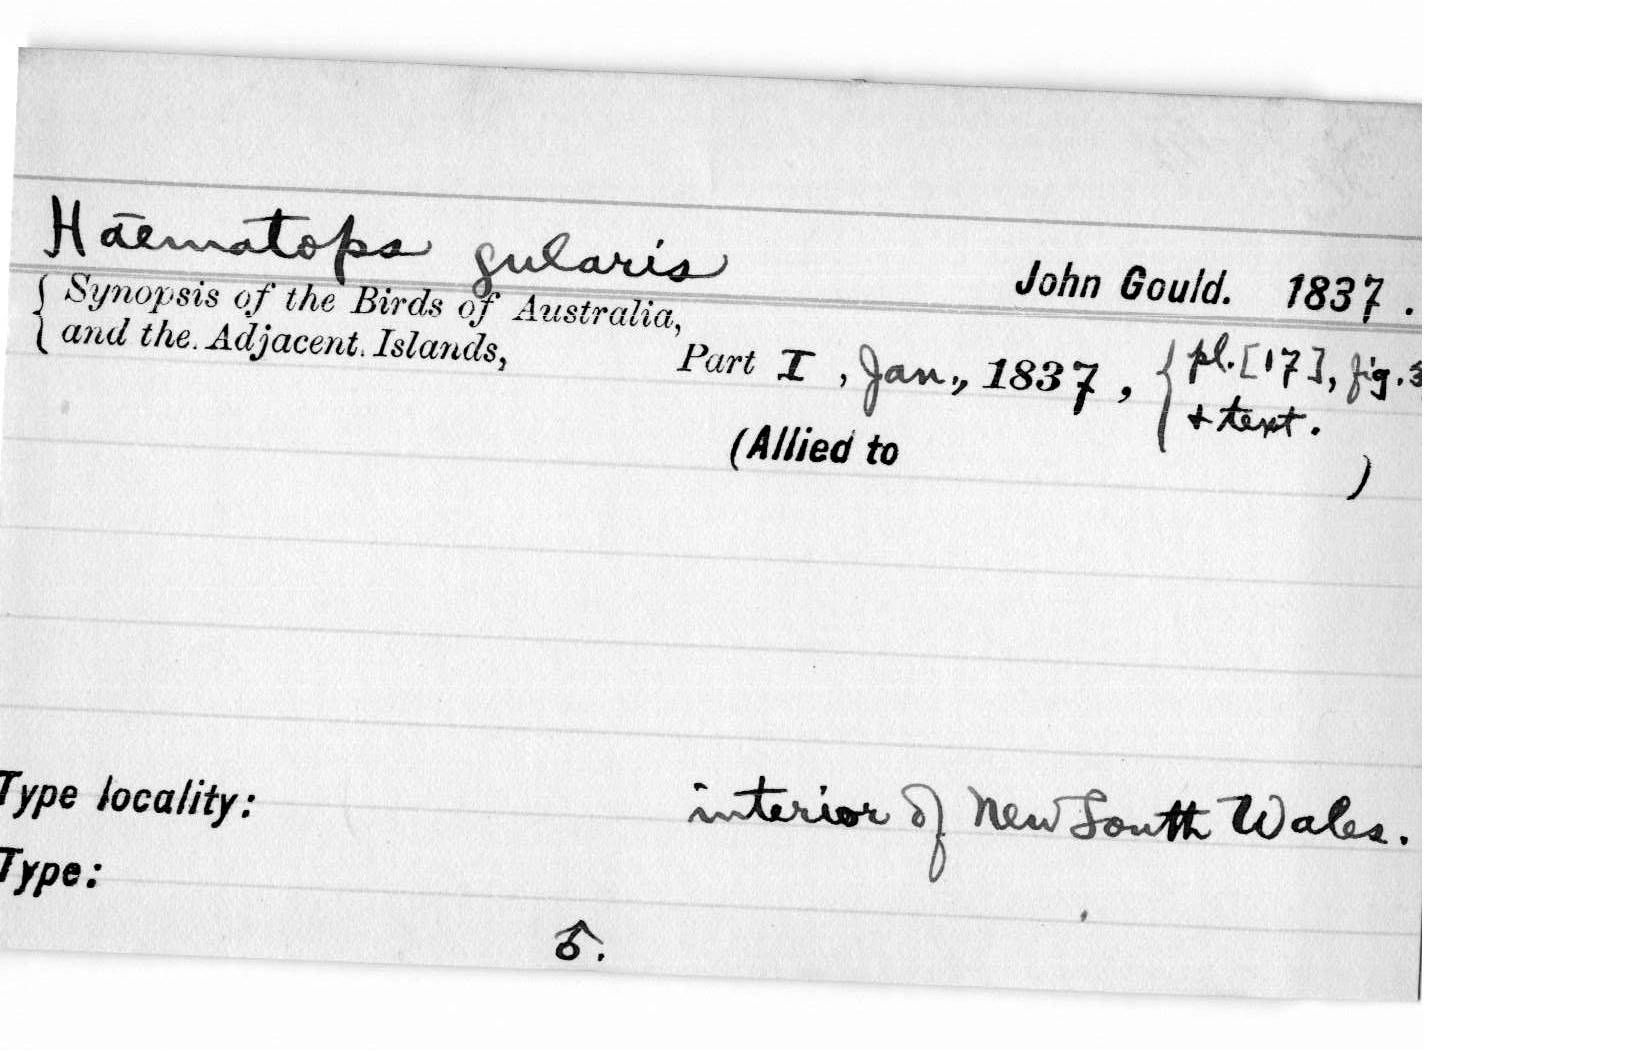 Haematops gularis
John Gould. 1837.
{ Synopsis of the Birds of Australia,
and the Adjacent Islands,
Part I, Jan., 1837, { pl. [17], fig. 3
+ text.
(Allied to )
Type locality: interior of New South Wales.
Type:
♂.